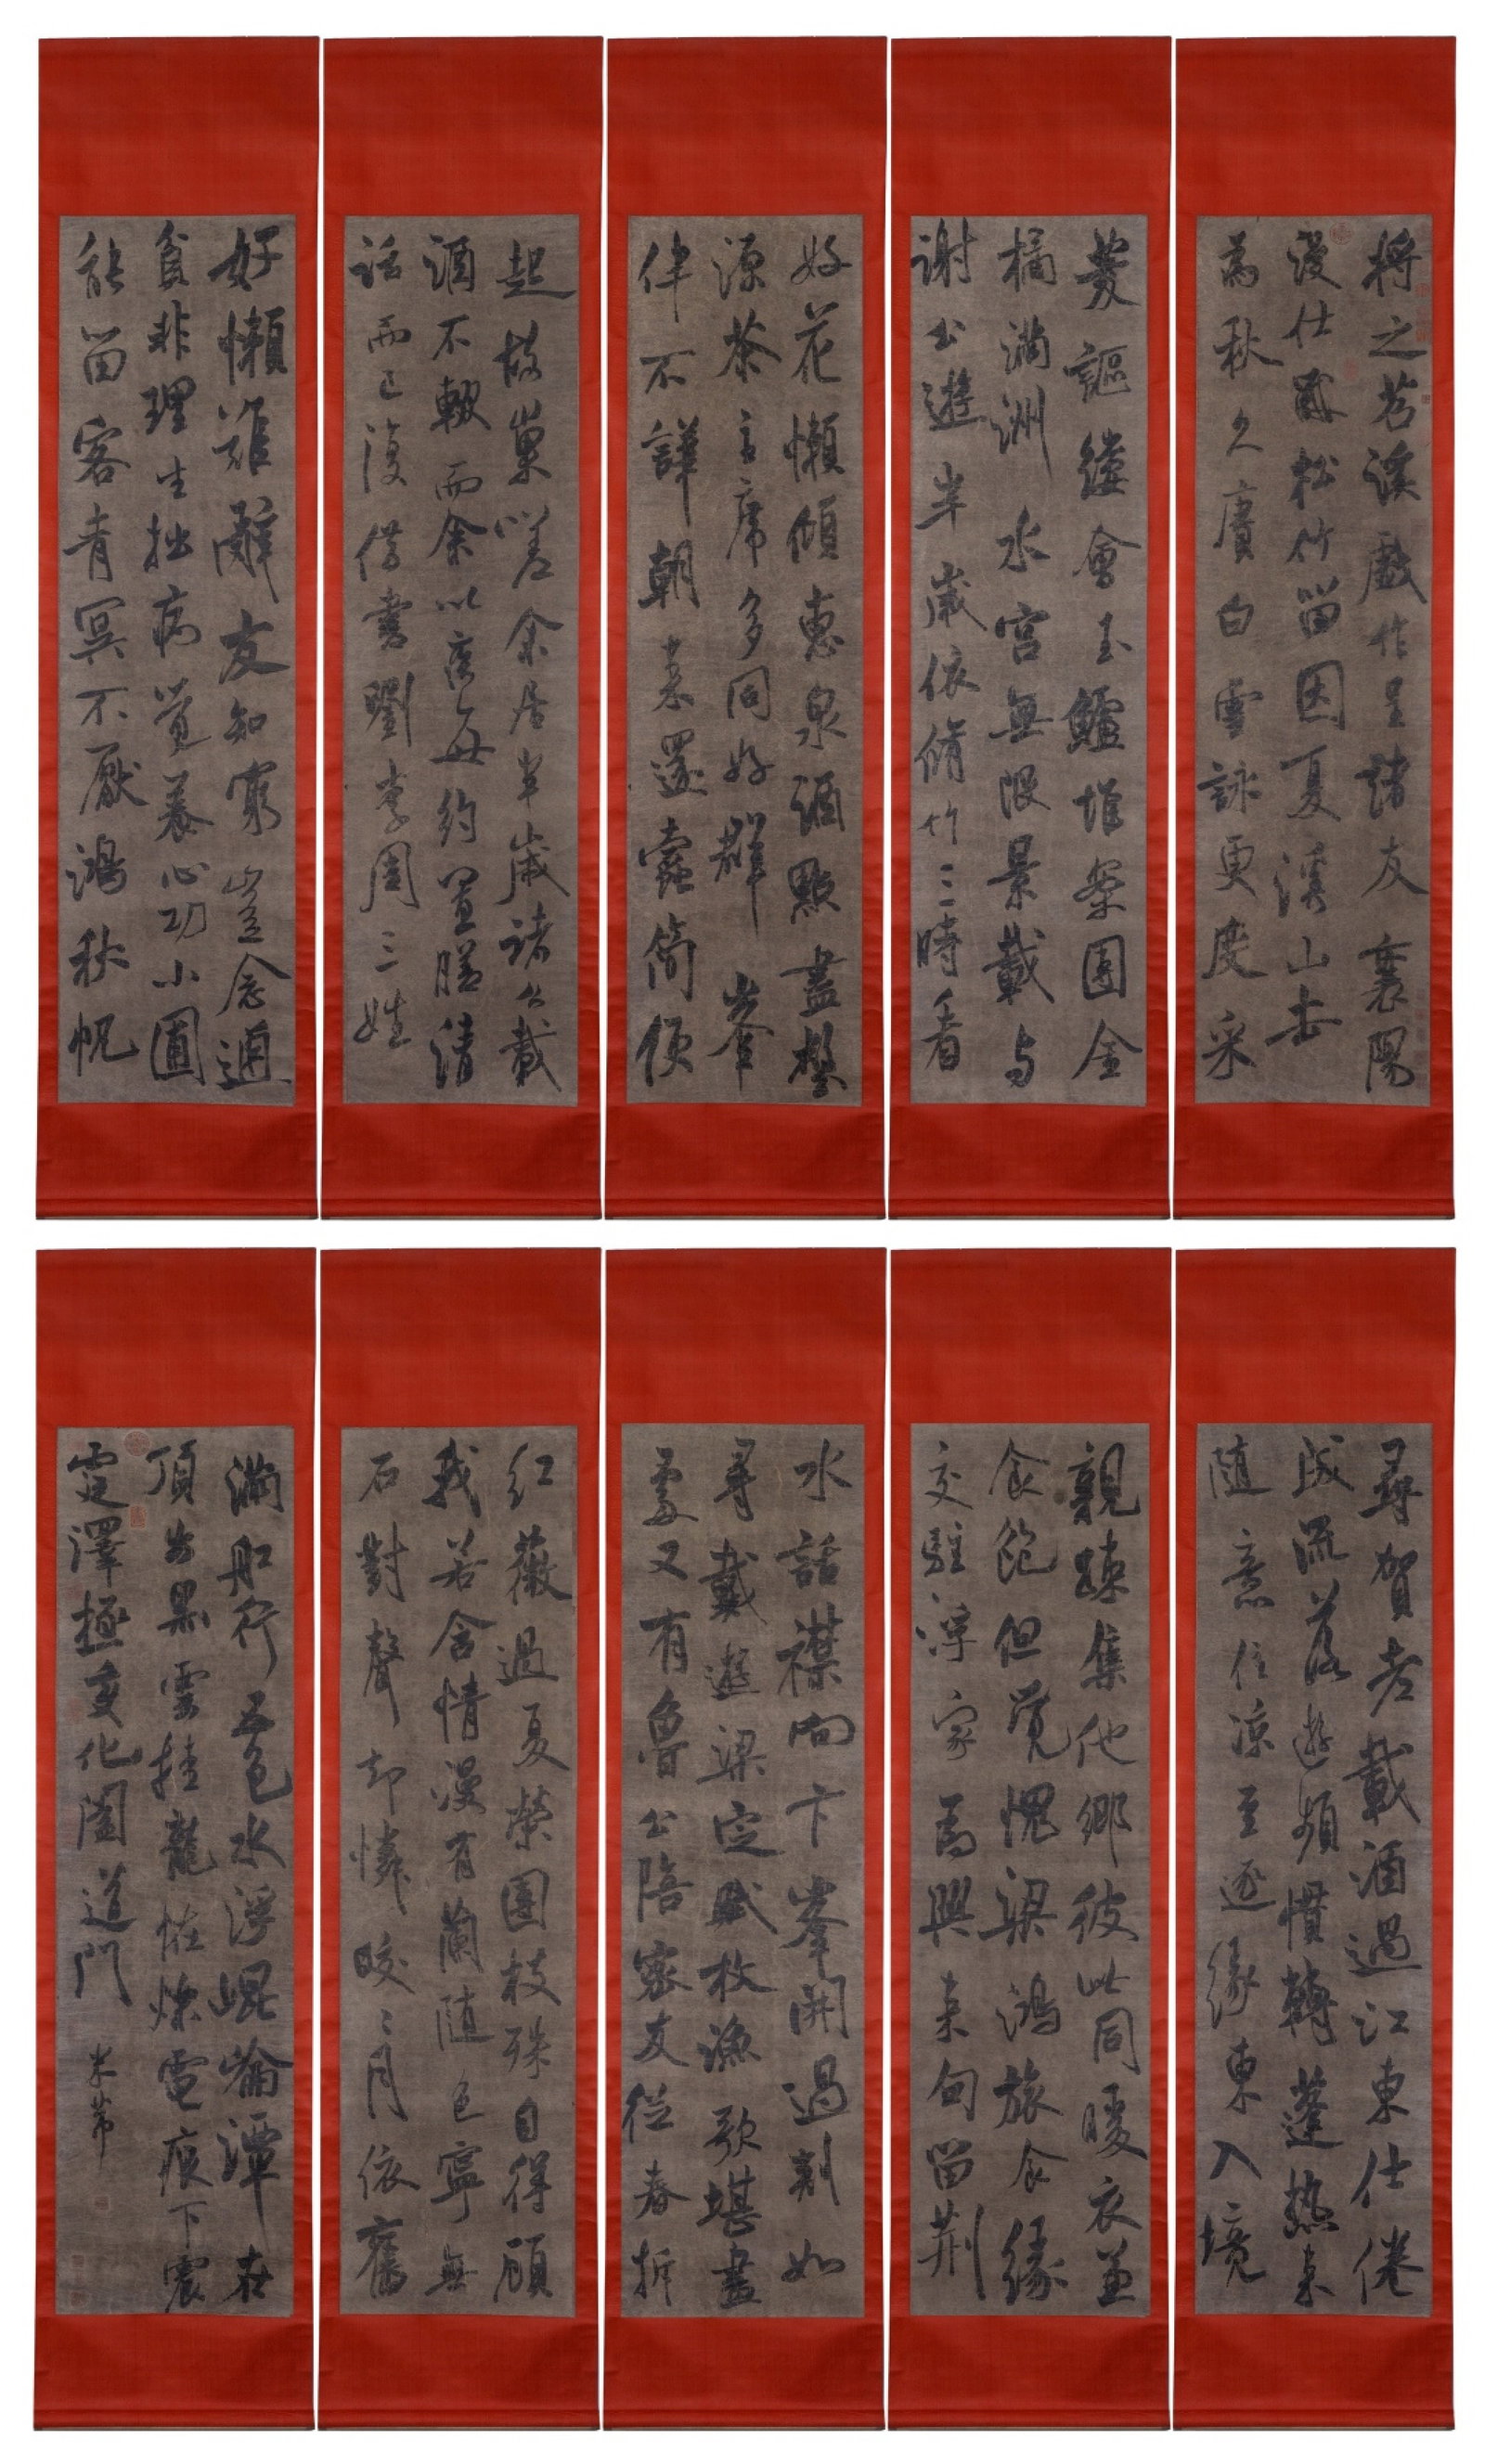 將之苕溪戲作呈諸友襄陽
漫仕 松竹留因夏溪山去
為秋久賡白雪詠更度采
菱謳縷會玉鱸堆案團金
橘滿洲水宮無限景載与
謝公遊半歲依脩竹三時看
好花懶傾惠泉酒點盡壑
源茶主席多同好群峯
伴不譁朝来還蠹簡便
起故巢嗟余居半歲諸公載
酒不輟而余以疾每約置膳清
話而已復借書劉李周三姓
好懶難辭友知窮豈念通
貧非理生拙病覺養心功小圃
能留客青冥不厭鴻秋帆
尋賀老載酒過江東仕倦
成流落遊頻慣轉蓬熱来
隨意住涼至逐緣東入境
親疎集他鄉彼此同暖衣並
食飽但覺愧梁鴻旅食緣
交駐浮家為興来句留荆
水話襟向卞峯開過剡如
尋戴遊梁定賦枚漁歌堪畫
處又有魯公陪密友從春拆
紅薇過夏榮團枝殊自得顧
我若含情漫有蘭隨色寧無
石對聲却憐皎〻月依舊
滿舡行五色水浮崐崘潭在
頂出黑雲挂龍恠爍電痕下震
霆澤極變化闔道門
米芾